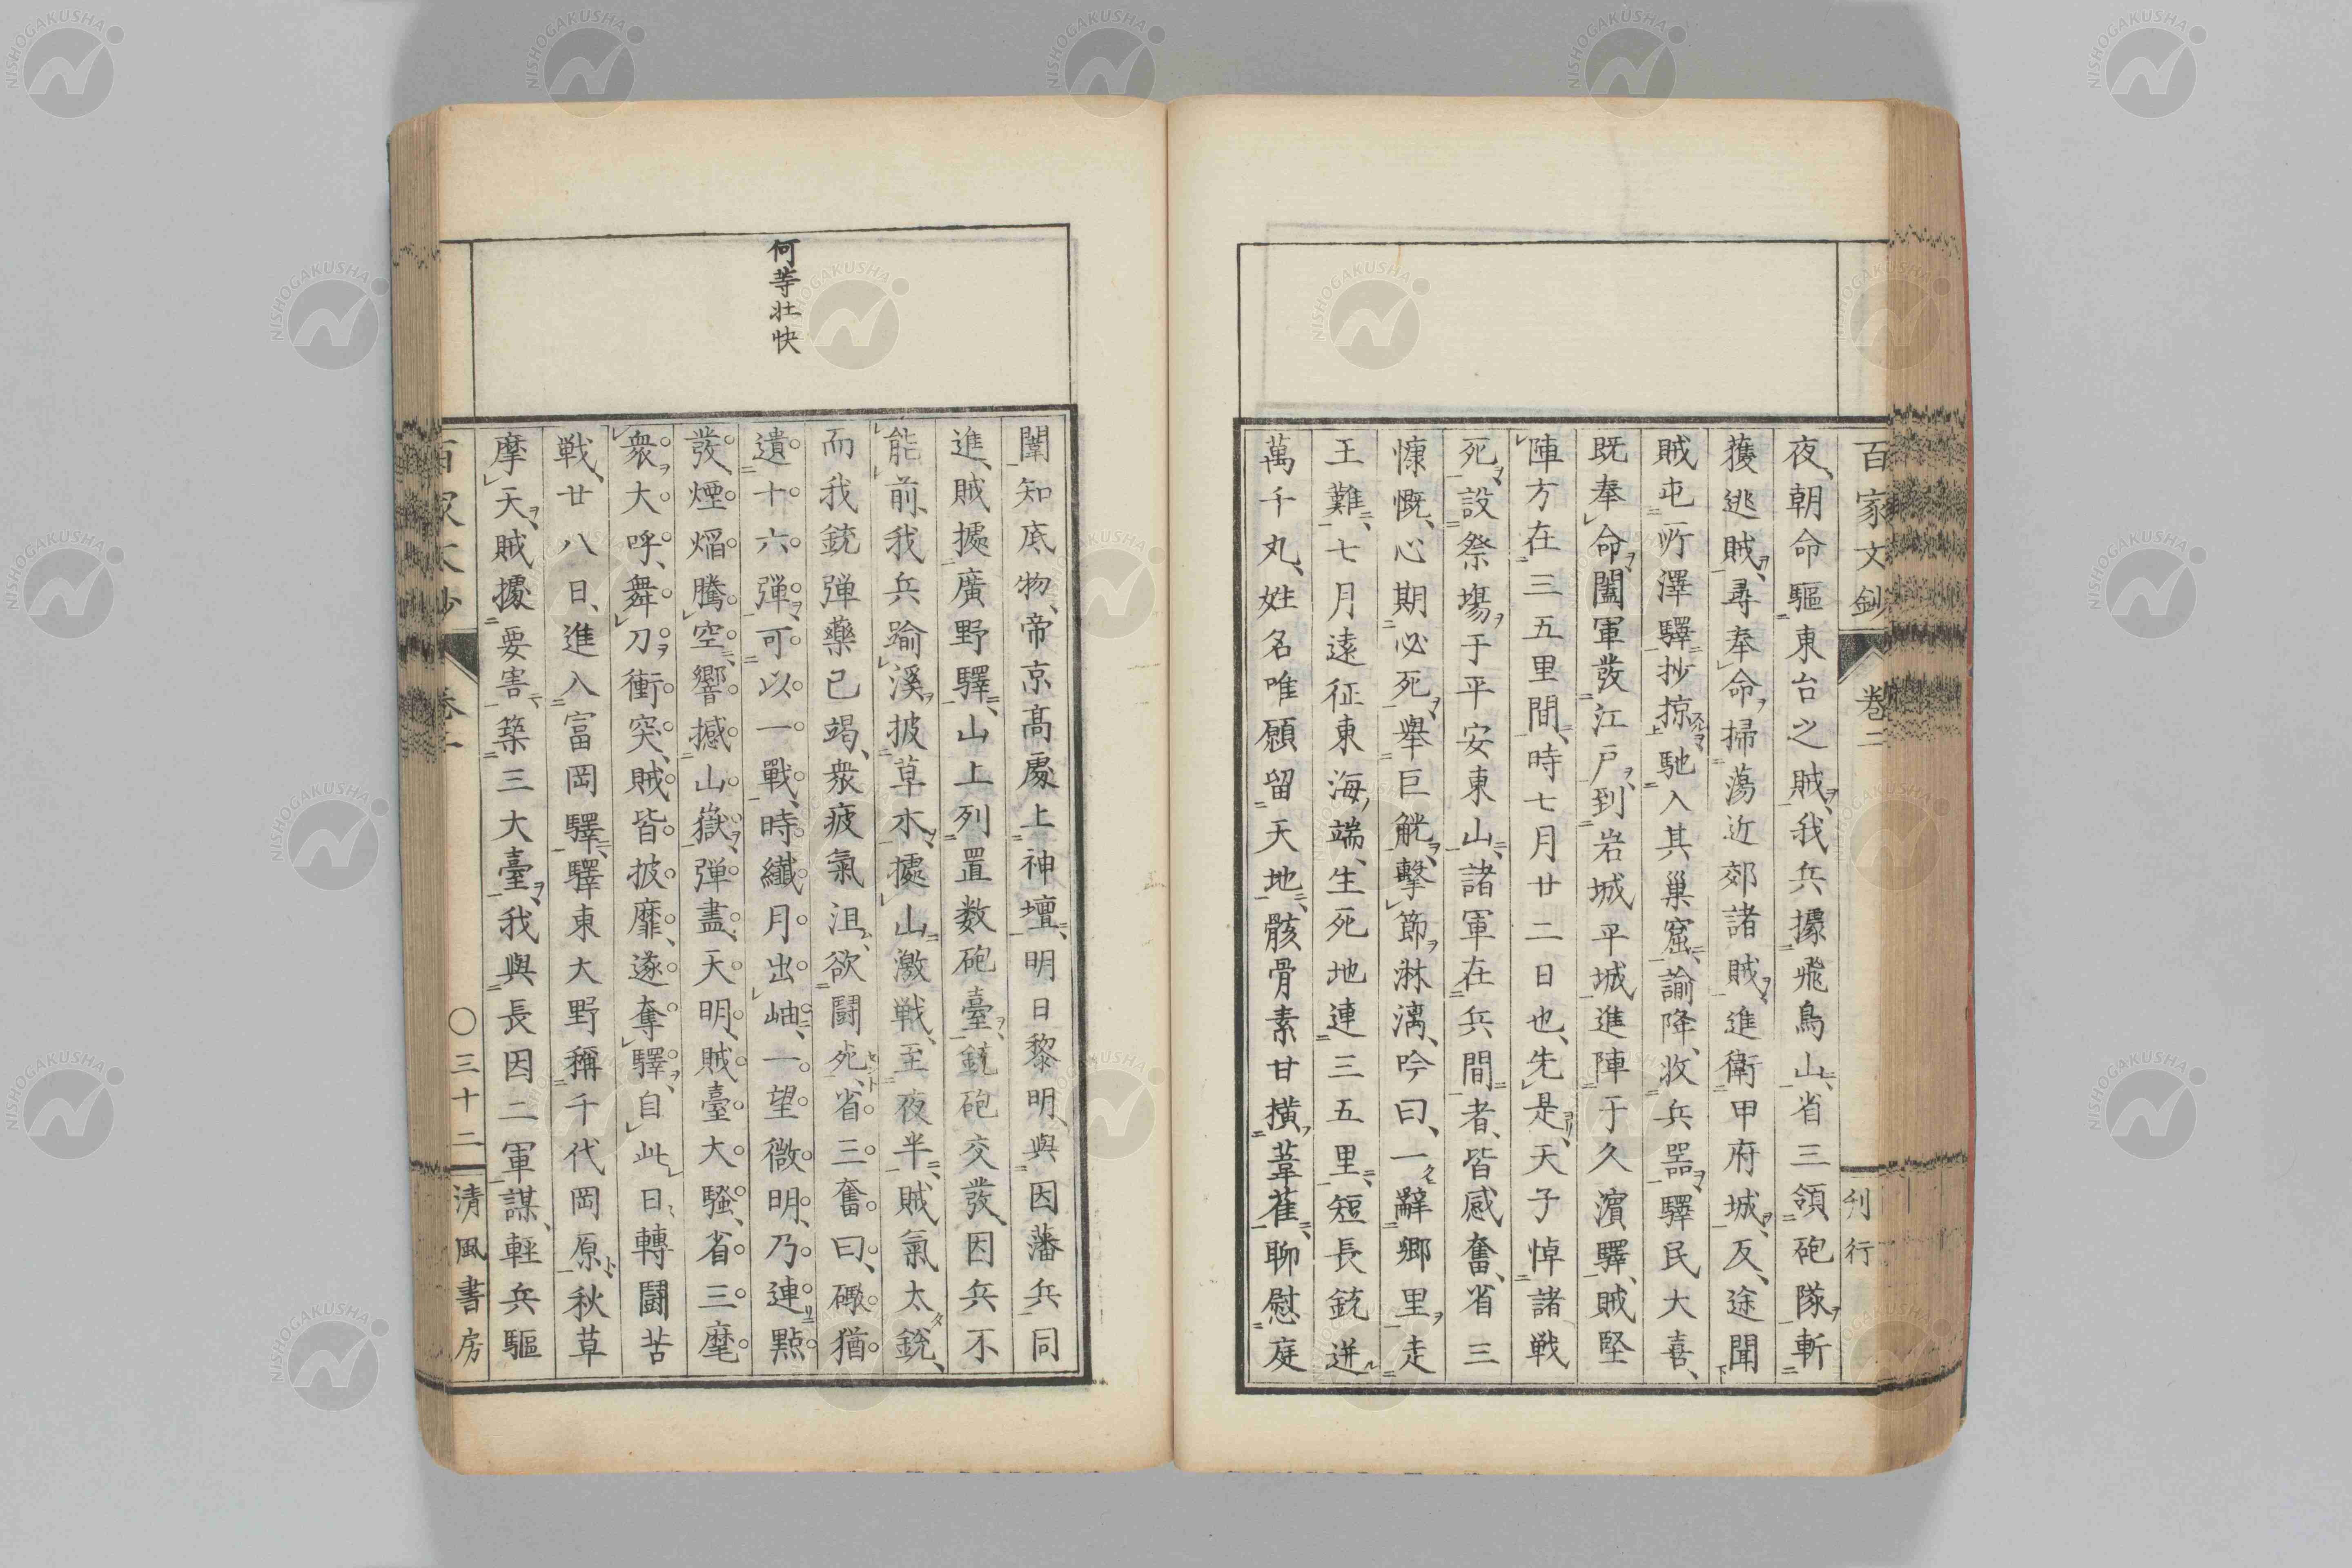 百家文鈔 卷二 刊行
夜、朝命驅東台之賊、我兵據飛鳥山、省三領砲隊、斬
獲逃賊、尋奉命、掃蕩近郊諸賊、進衛甲府城、反、途聞
賊屯所澤驛抄掠、馳入其巢窟、諭降、收兵器、驛民大喜、
既奉命、闔軍發江戶、到岩城平城進陣于久濱驛、賊堅
陣方在三五里間、時七月廿二日也、先是、天子悼諸戦
死、設祭場于平安東山、諸軍在兵間者、皆感奮、省三
慷慨、心期必死、舉巨觥、擊節淋漓、吟曰、一辭鄉里走
王難、七月遠征東海端、生死地連三五里、短長銃迸
萬千丸、姓名唯願留天地、骸骨素甘橫葦萑、聊慰庭
何等壯快
闈知底物、帝京高處上神壇、明日黎明、與因藩兵同
進、賊據廣野驛、山上列置数砲臺、銃砲交發、因兵不
能前、我兵踰溪、披草木、據山激戦、至夜半、賊氣太銳、
而我銃弾藥已竭、衆疲氣沮、欲鬪死、省三奮曰、礮猶
遺十六弾、可以一戰、時纖月出岫、一望微明、乃連點
發、煙焰騰空、響撼山嶽、弾盡、天明、賊臺大騒、省三麾
衆大呼、舞刀衝突、賊皆披靡、遂奪驛、自此日轉鬪苦
戦、廿八日、進入富岡驛、驛東大野稱千代岡原、秋草
摩天、賊據要害、築三大臺、我與長因二軍謀、輕兵驅
〇三十二 清風書房